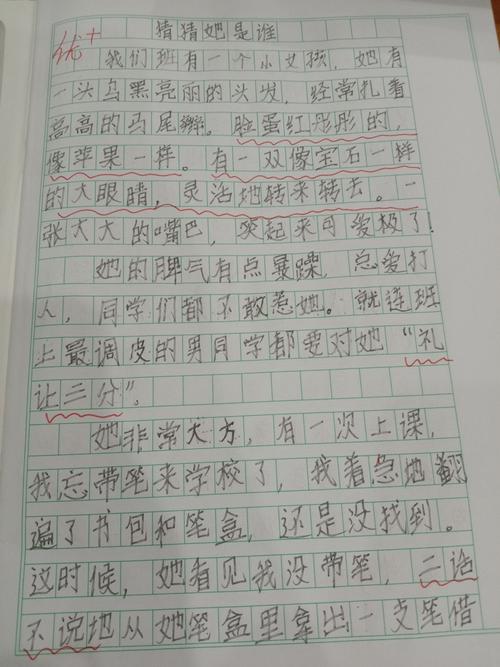 猜猜她是谁
优+
我们班有一个小女孩，她有
一头乌黑亮丽的头发，经常扎着
高高的马尾辫。脸蛋红彤彤的，
像苹果一样。有一双像宝石一样
的大眼睛，灵活地转来转去。一
张大大的嘴巴，笑起来可爱极了！
她的脾气有点暴躁，总爱打
人，同学们都不敢惹她。就连班
上最调皮的男同学都要对她“礼
让三分”。
她非常大方，有一次上课，
我忘带笔来学校了，我着急地翻
遍了书包和笔盒，还是没找到。
这时候，她看见我没带笔，二话
不说地从她笔盒里拿出一支笔借